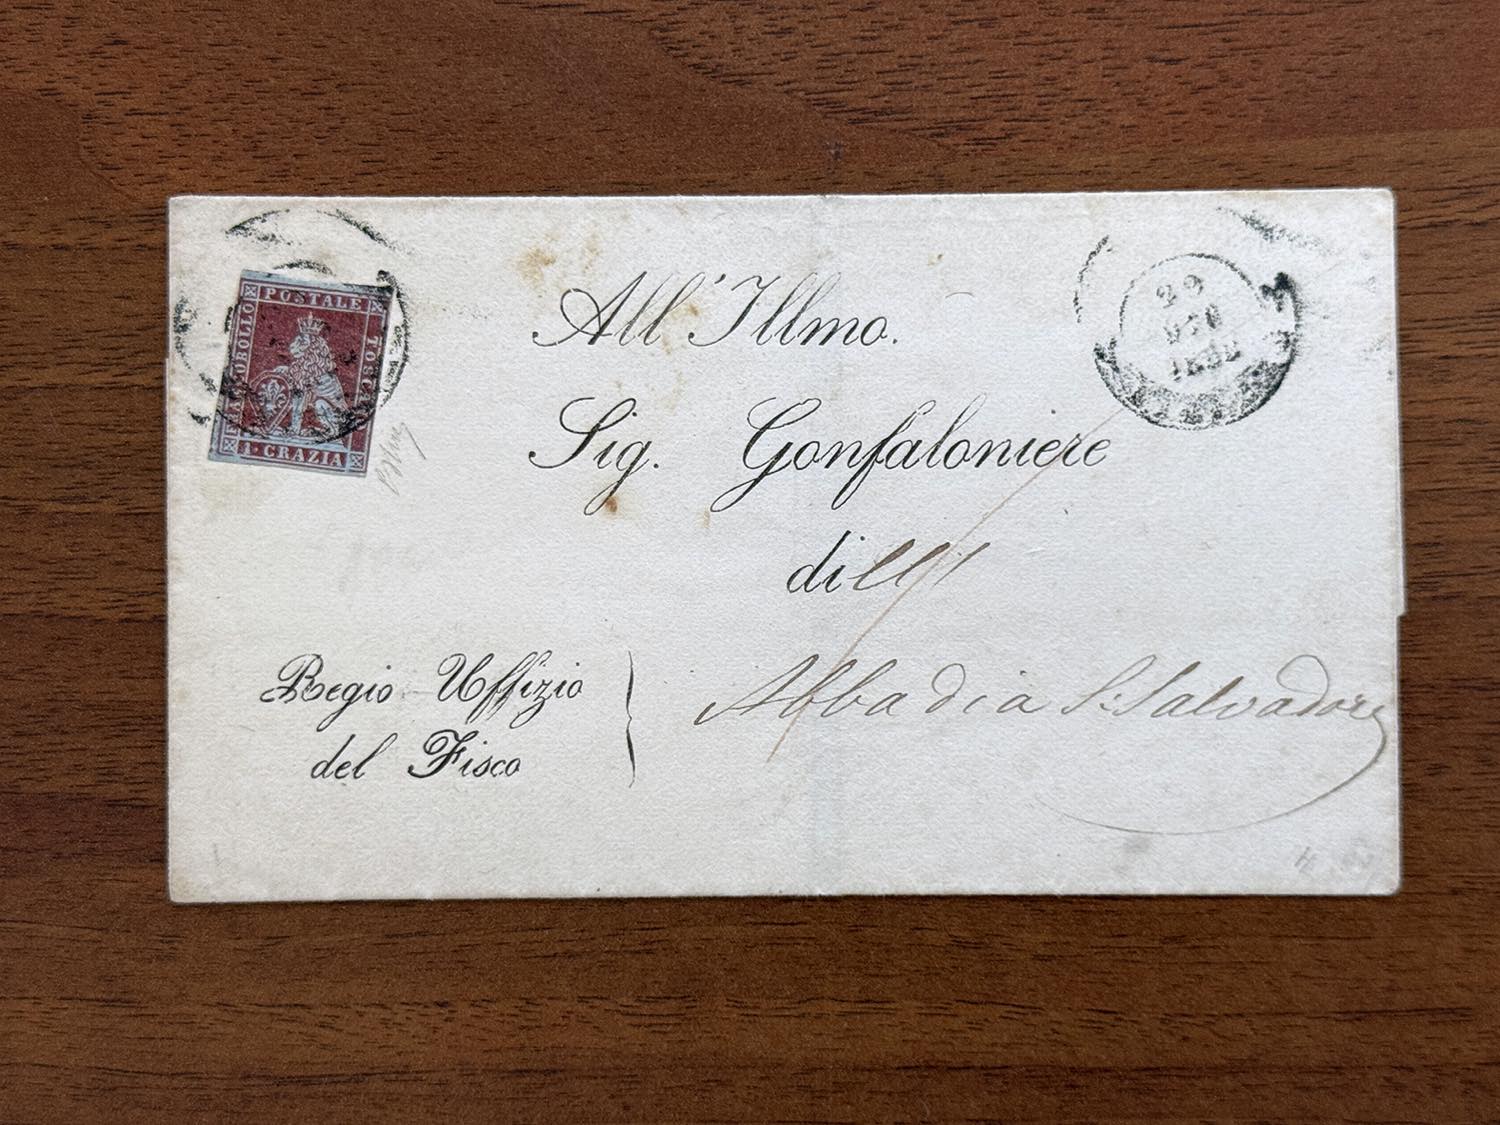 FRANCOBOLLO POSTALE TOSCANO
1 CRAZIA
29
1852
All' Illmo.
Sig. Gonfaloniere
dell'
Abbadia S. Salvadore
Regio Uffizio
del Fisco